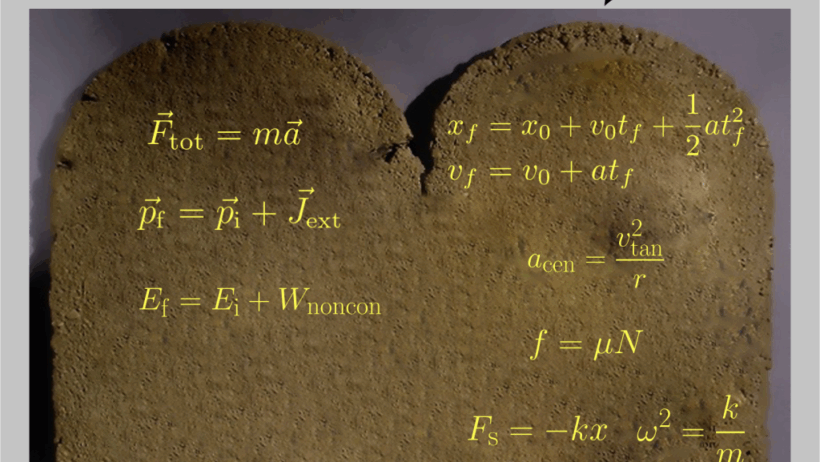 $\vec{F}_{\text{tot}} = m\vec{a}$
$\vec{p}_{\text{f}} = \vec{p}_{\text{i}} + \vec{J}_{\text{ext}}$
$E_{\text{f}} = E_{\text{i}} + W_{\text{noncon}}$
$x_f = x_0 + v_0 t_f + \frac{1}{2} a t_f^2$
$v_f = v_0 + a t_f$
$a_{\text{cen}} = \frac{v_{\text{tan}}^2}{r}$
$f = \mu N$
$F_{\text{s}} = -kx \quad \omega^2 = \frac{k}{m}$